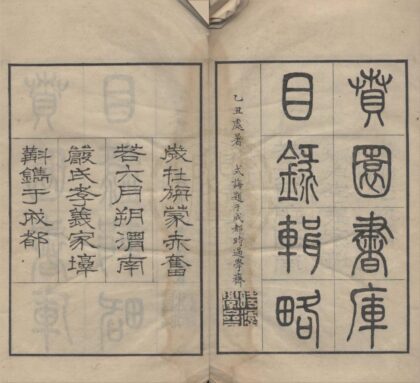 賁園書庫
目錄輯略
乙丑處暑 式誨題于成都時過學齋
歲在旃蒙赤奮
若六月朔渭南
嚴氏孝義家塾
斠鐫于成都